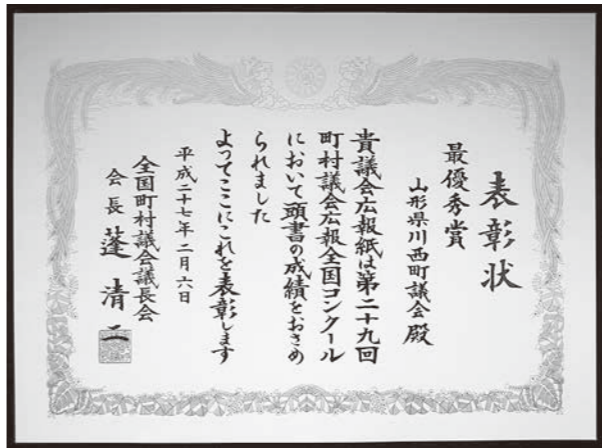 表彰状
最優秀賞
山形県川西町議会殿
貴議会広報紙は第二十九回
町村議会広報全国コンクール
において頭書の成績をおさめ
られました
よってここにこれを表彰します
平成二十七年二月六日
全国町村議会議長会
会長 蓬清二